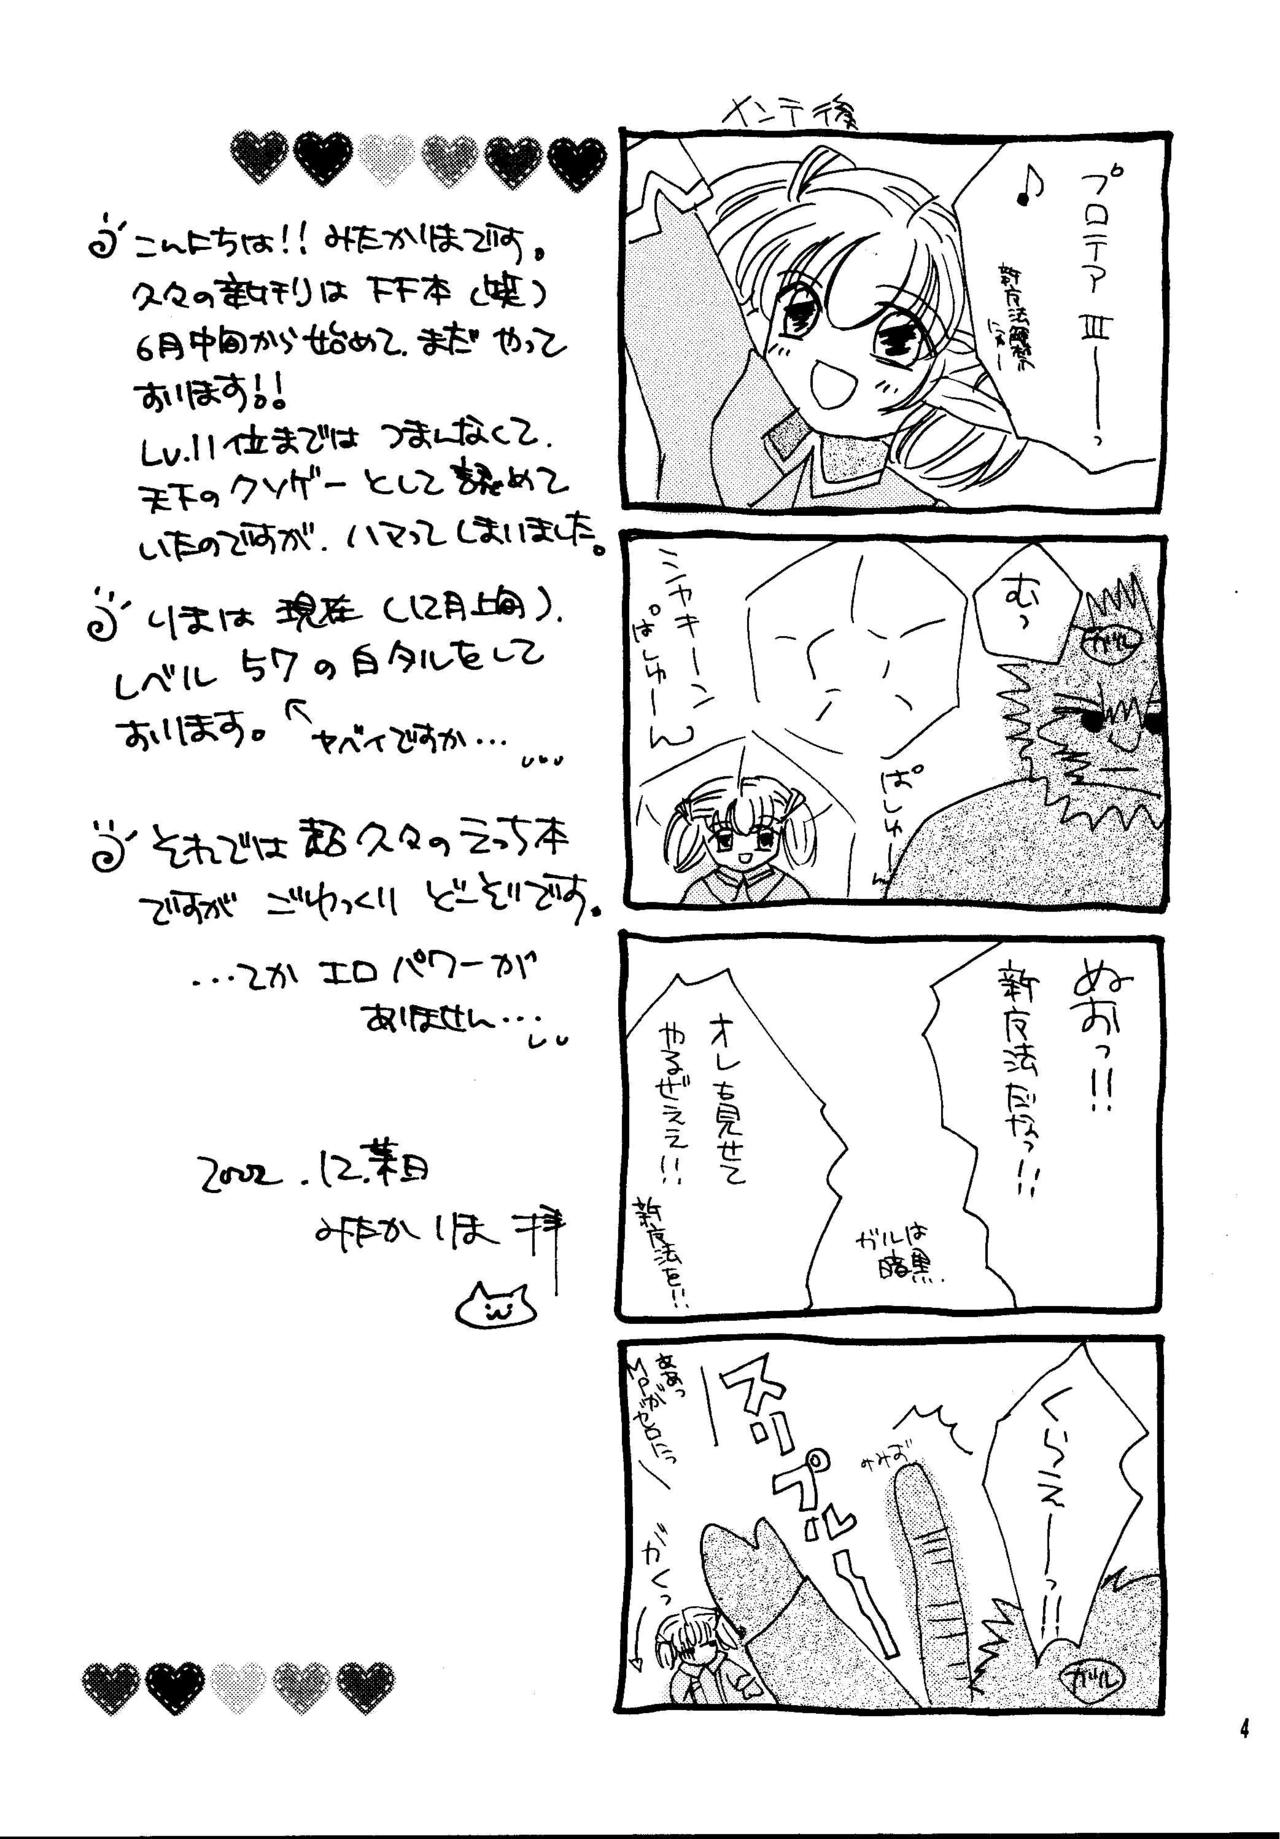 メンテ後
プロテア Ⅲ——っ
♪
新魔法解禁
むっ
ガル
シャキーン
ぱしゅーん
ぱしゅーん
ぬおっ!!
新魔法だなっ!!
オレも見せて
やるぜぇぇ!!
新魔法を!!
ガルは
暗黒.
くらえーーっ!!
ガル
スリプルー
ああっ
MPがゼロにっ
がくっ
こんにちは!! みたかりまです。
久々の新刊はFF本(笑)
6月中旬から始めて、まだ やって
おります!!
Lv.11位までは つまんなくて、
天下のクソゲーとして認めて
いたのですが、ハマってしまいました。
りまは 現在(12月上旬)、
レベル 57の白タルをして
おります。
ヤバイですか…
それでは 超久々のえっち本
ですが ごゆっくり どーぞです。
…てか エロパワーが
ありません…
2002.12.葉日
みたか りま 拝
4